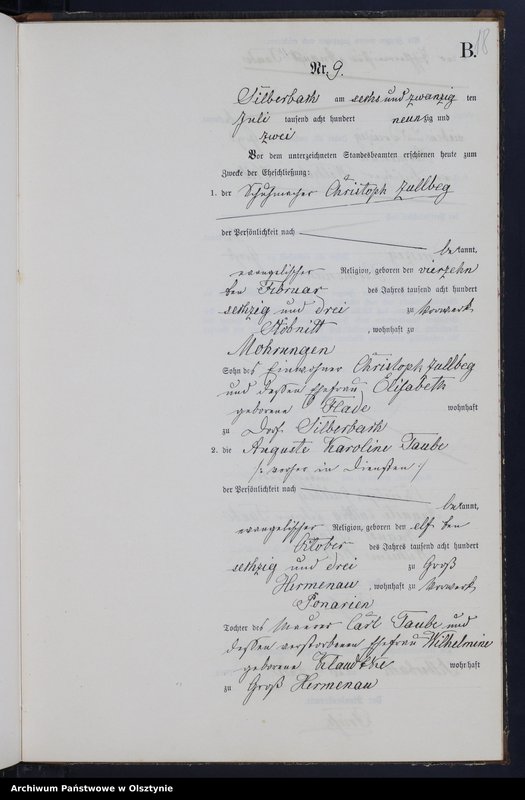 B.
18
Nr. 9.
Silberbach am sechs und zwanzig ten
Juli tausend acht hundert neunzig und
zwei
Vor dem unterzeichneten Standesbeamten erschienen heute zum
Zwecke der Eheschließung:
1. der Schuhmacher Christoph Zallbeg
der Persönlichkeit nach
bekannt,
evangelischer Religion, geboren den vierzehn
ten Februar des Jahres tausend acht hundert
sechzig und drei zu Vorwerk
, wohnhaft zu
Mohrungen
Sohn des Einwohner Christoph Zallbeg
und dessen Ehefrau Elisabeth
geborene wohnhaft
zu Dorf Silberbach
2. die Auguste Karoline Taube
/: vorher in Diensten :/
der Persönlichkeit nach
bekannt,
evangelischer Religion, geboren den elf ten
Oktober des Jahres tausend acht hundert
sechzig und drei zu Groß
Hermenau, wohnhaft zu Vorwerk
Ponarien
Tochter des Maurer Carl Taube und
dessen verstorbenen Ehefrau Wilhelmine
geborene wohnhaft
zu Groß Hermenau
Archiwum Państwowe w Olsztynie